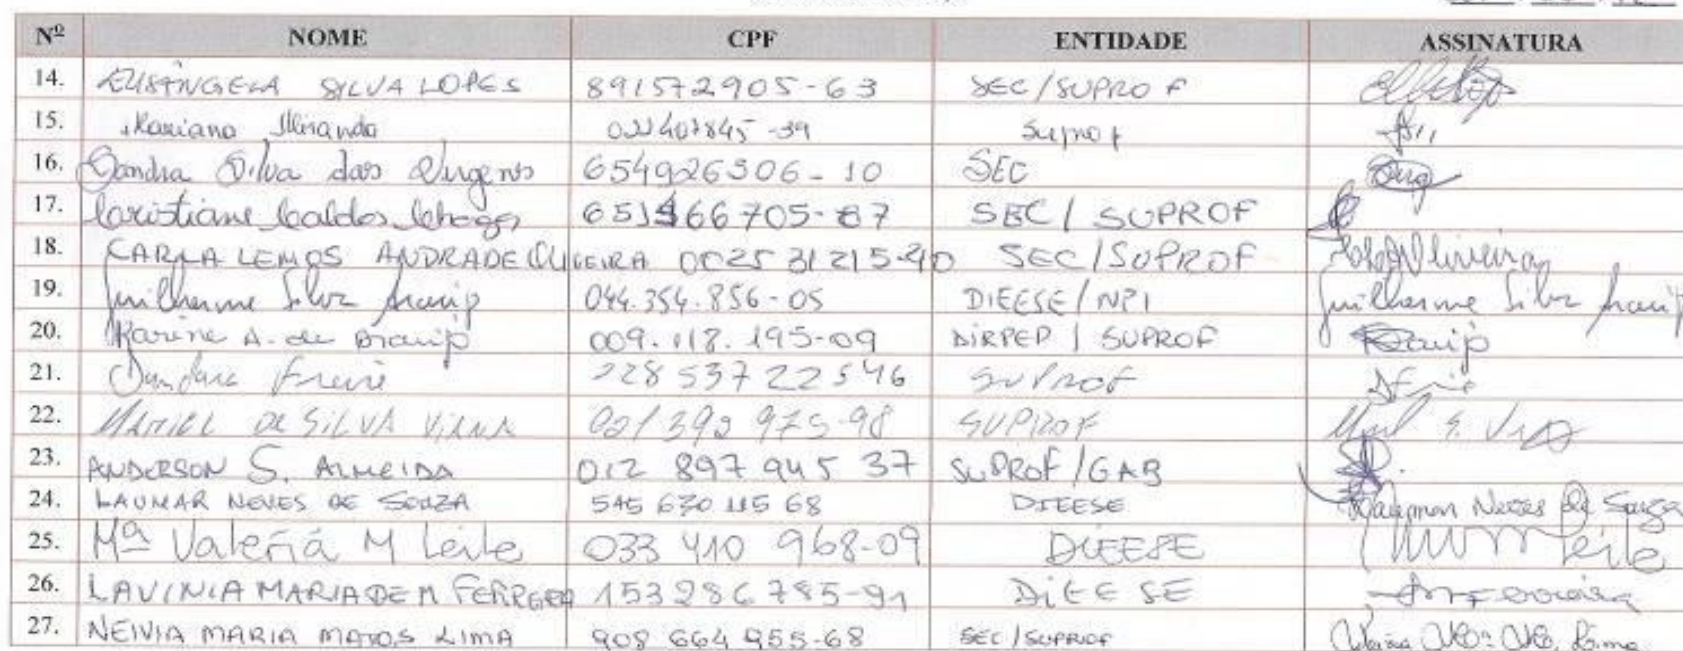 Nº NOME CPF ENTIDADE ASSINATURA
14. ELISÂNGELA SILVA LOPES 891572905-63 SEC/SUPROF
15. Mariana Miranda 022407845-39 Suprof
16. Sandra Silva das Virgens 654926506-10 SEC
17. Caristiane Caldas Chagas 651466705-87 SEC/SUPROF
18. CARLA LEMOS ANDRADE OLIVEIRA 002531215-40 SEC/SUPROF
19. Guilherme Silva Araujo 044.354.856-05 DIEESE/NPI Guilherme Silva Araujo
20. Karine A. de Araujo 009.118.195-09 DIRPEP / SUPROF Karaujo
21. Dandara Freire 22853722546 SUPROF
22. DA SILVA VIANA 001392975-98 SUPROF
23. ANDERSON S. ALMEIDA 012 897 945 37 SUPROF/GAB
24. LAUMAR NEVES DE SOUZA 545 630 115 68 DIEESE Laumar Neves de Souza
25. Mª Valeria M Leite 033 410 968-09 DIEESE Leite
26. LAVINIA MARIA DE M FERREIRA 153286785-91 DIEESE
27. NEIVIA MARIA MATOS LIMA 908 664 955-68 SEC/SUPROF Lima